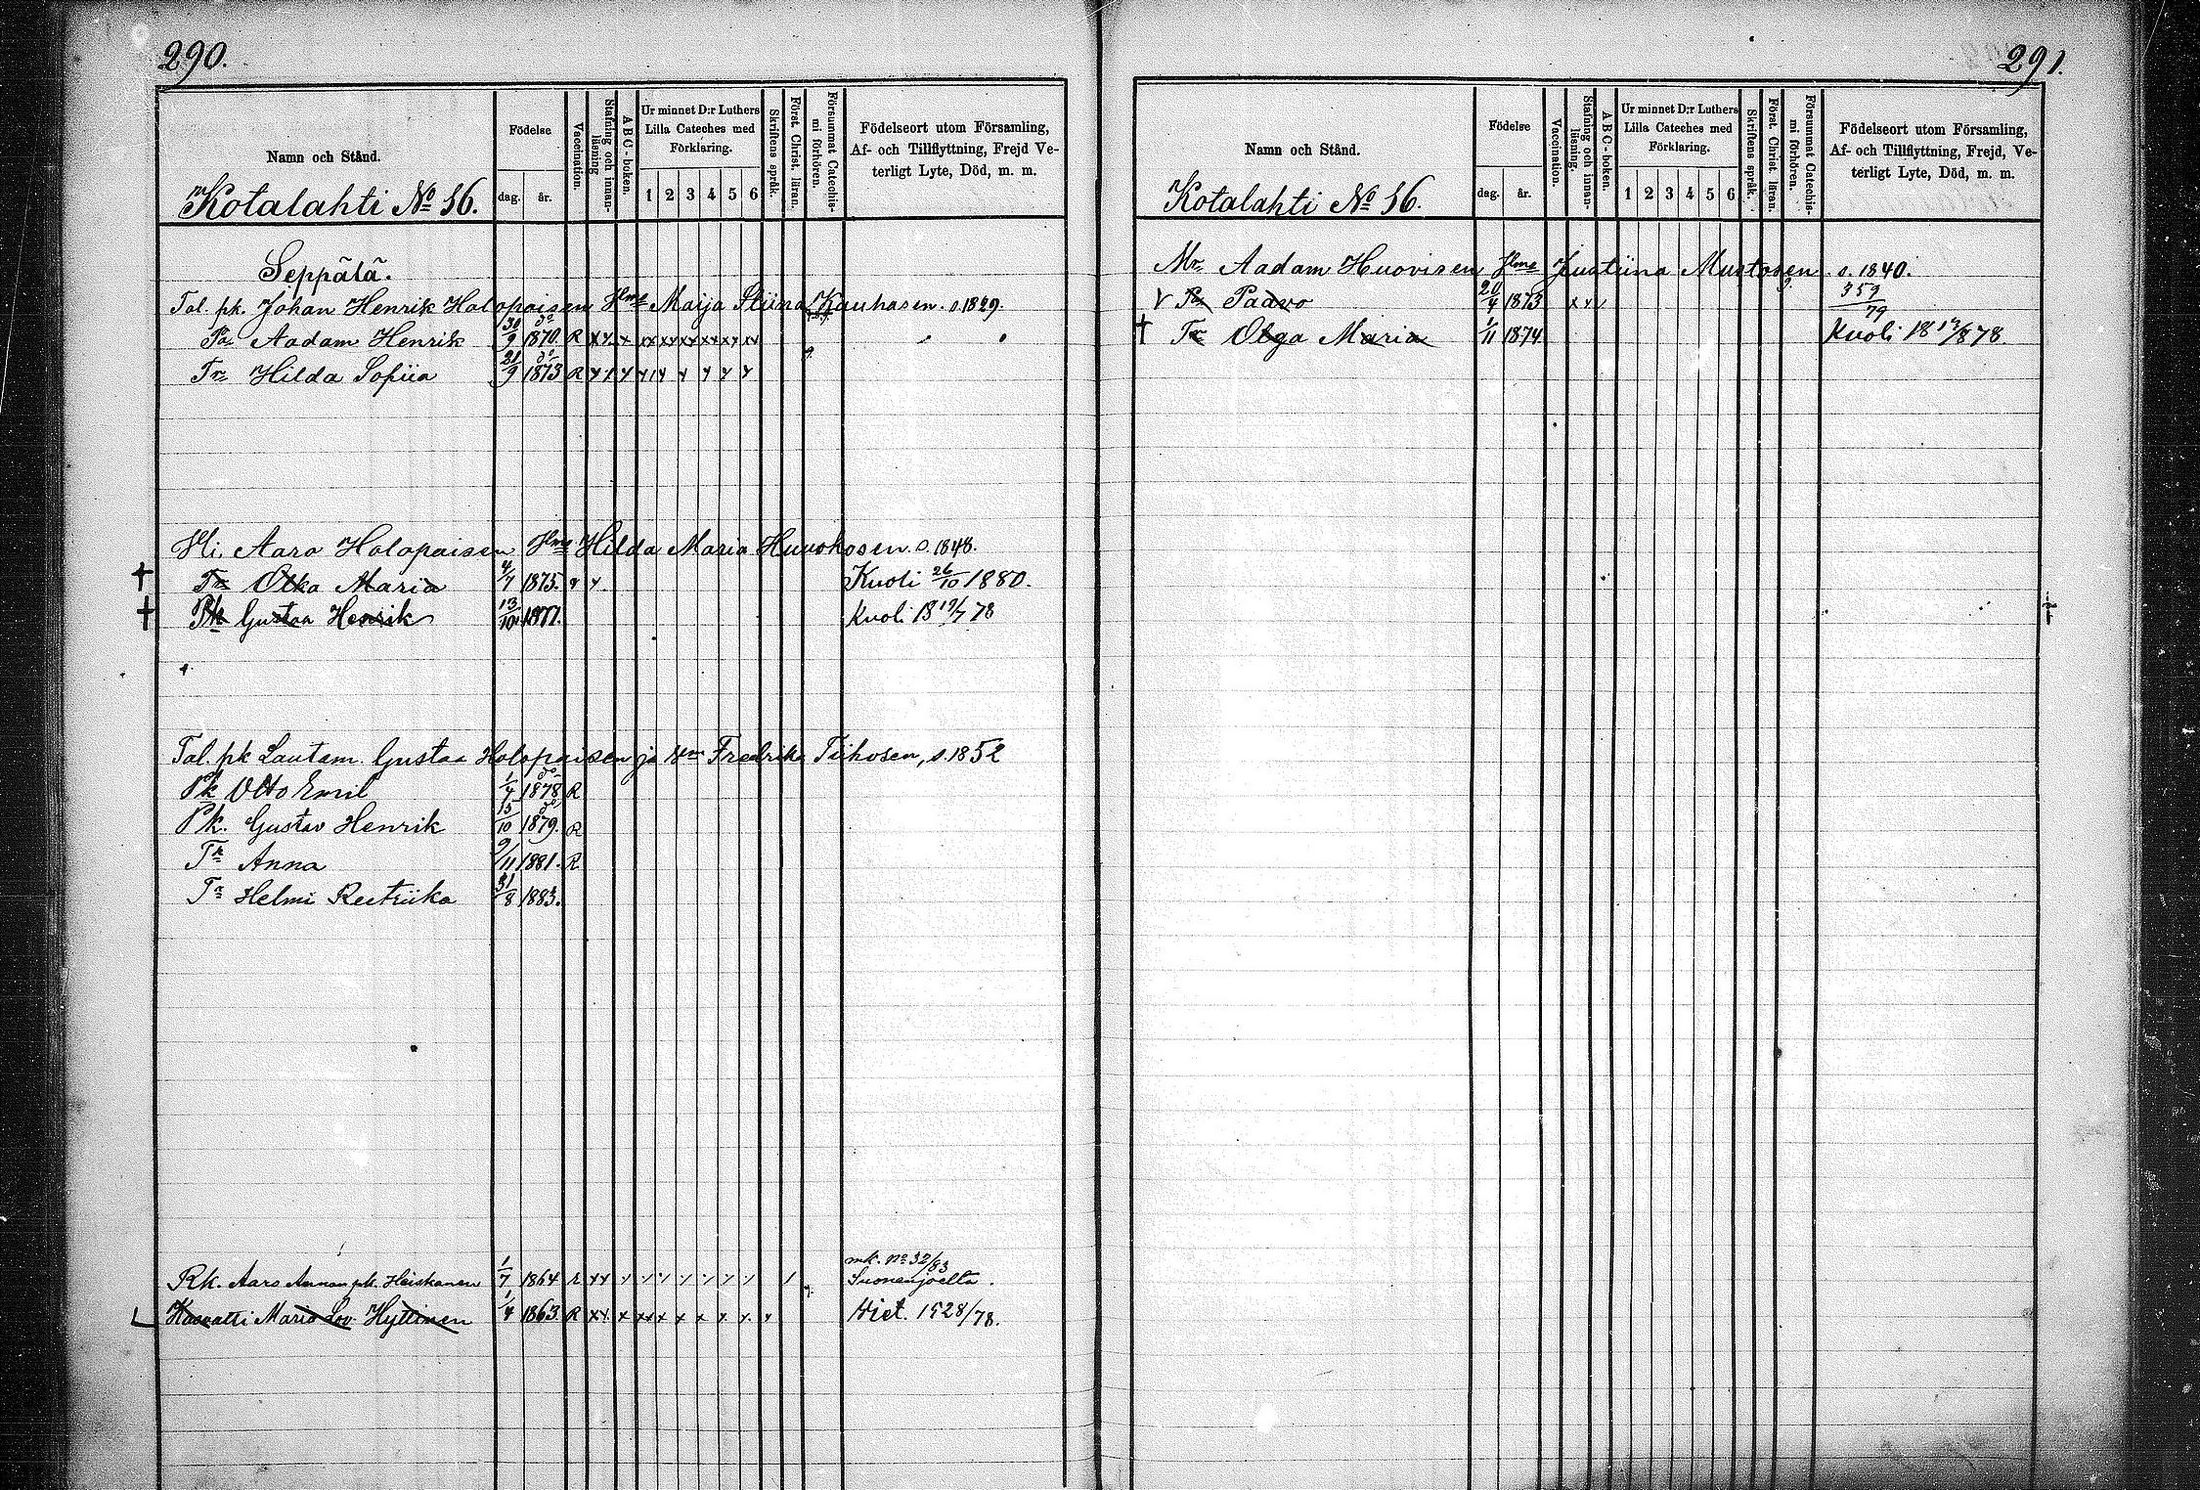 290.
Namn och Stånd.
Födelse
dag.
år.
Vaccination.
Stafning och innan-
läsning
A B C - boken.
Ur minnet D:r Luthers
Lilla Cateches med
Förklaring.
1 2 3 4 5 6
Skriftens språk.
Först. Christ. läran.
Försummat Catechis-
mi förhören.
Födelseort utom Församling,
Af- och Tillflyttning, Frejd Ve-
terligt Lyte, Död, m. m.
Kotalahti No 36.
Seppälä.
Tal. pk. Johan Henrik Holopaisen Hlmä Maija Stiina Kauhasen s. 1829.
Pa Aadam Henrik 30/9 1870. R
Tr Hilda Sofiia 21/9 1873 R
Hli. Aaro Holopaisen Hlmä Hilda Maria Huuskosen s. 1848.
+ Tr Olka Maria 4/7 1875. Kuoli 26/10 1880.
+ Pk Gustaa Henrik 13/10 1877. Kuoli 18 19/7 78
Tal. pk Lautam. Gustaa Holopaisen ja Vm Fredrika Tiihosen, s. 1852
Pk Otto Emil 1/7 1878 R
Pk. Gustav Henrik 15/10 1879. R
Tr Anna 9/11 1881. R
Tr Helmi Reetriika 31/8 1883.
Rk. Aaro Aaman pk. Heiskanen 1/7 1864 R mk. No 32/83
Suonenjoelta.
Kasvatti Maria Lov. Hyttinen 1/4 1863 R Wiet. 1928/78.
291.
Namn och Stånd.
Födelse
dag.
år.
Vaccination.
Stafning och innan-
läsning.
A B C - boken.
Ur minnet D:r Luthers
Lilla Cateches med
Förklaring.
1 2 3 4 5 6
Skriftens språk.
Först. Christ. läran.
Försummat Catechis-
mi förhören.
Födelseort utom Församling,
Af- och Tillflyttning, Frejd, Ve-
terligt Lyte, Död, m. m.
Kotalahti No 36.
Mr Aadam Huovisen Hlmä Justiina Mustosen s. 1840.
V Pa Paavo 20/4 1873 359/79
+ Tr Olga Maria 1/11 1874. Kuoli 18 19/8 78.